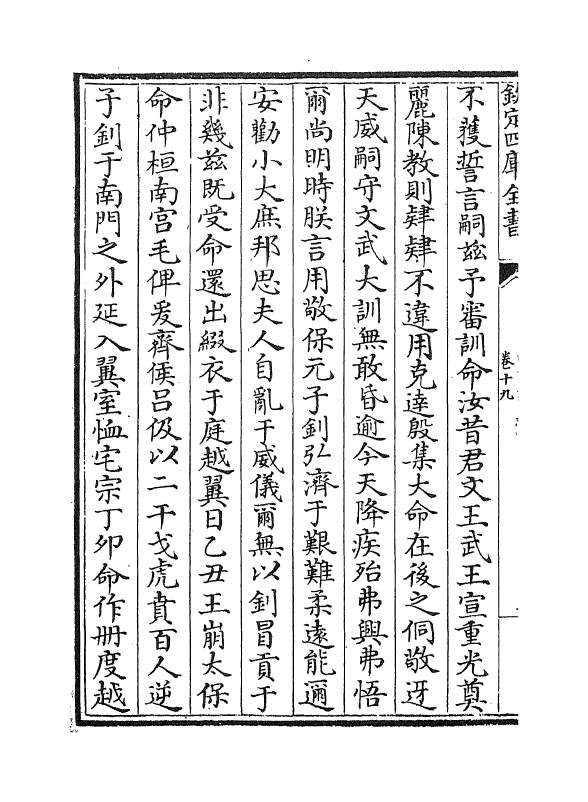 欽定四庫全書
卷十九
不獲誓言嗣茲予審訓命汝昔君文王武王宣重光奠
麗陳教則肄肄不違用克達殷集大命在後之侗敬迓
天威嗣守文武大訓無敢昏逾今天降疾殆弗興弗悟
爾尚明時朕言用敬保元子釗弘濟于艱難柔遠能邇
安勸小大庶邦思夫人自亂于威儀爾無以釗冒貢于
非幾茲既受命還出綴衣于庭越翼日乙丑王崩太保
命仲桓南宫毛俾爰齊侯吕伋以二干戈虎賁百人逆
子釗于南門之外延入翼室恤宅宗丁夘命作册度越